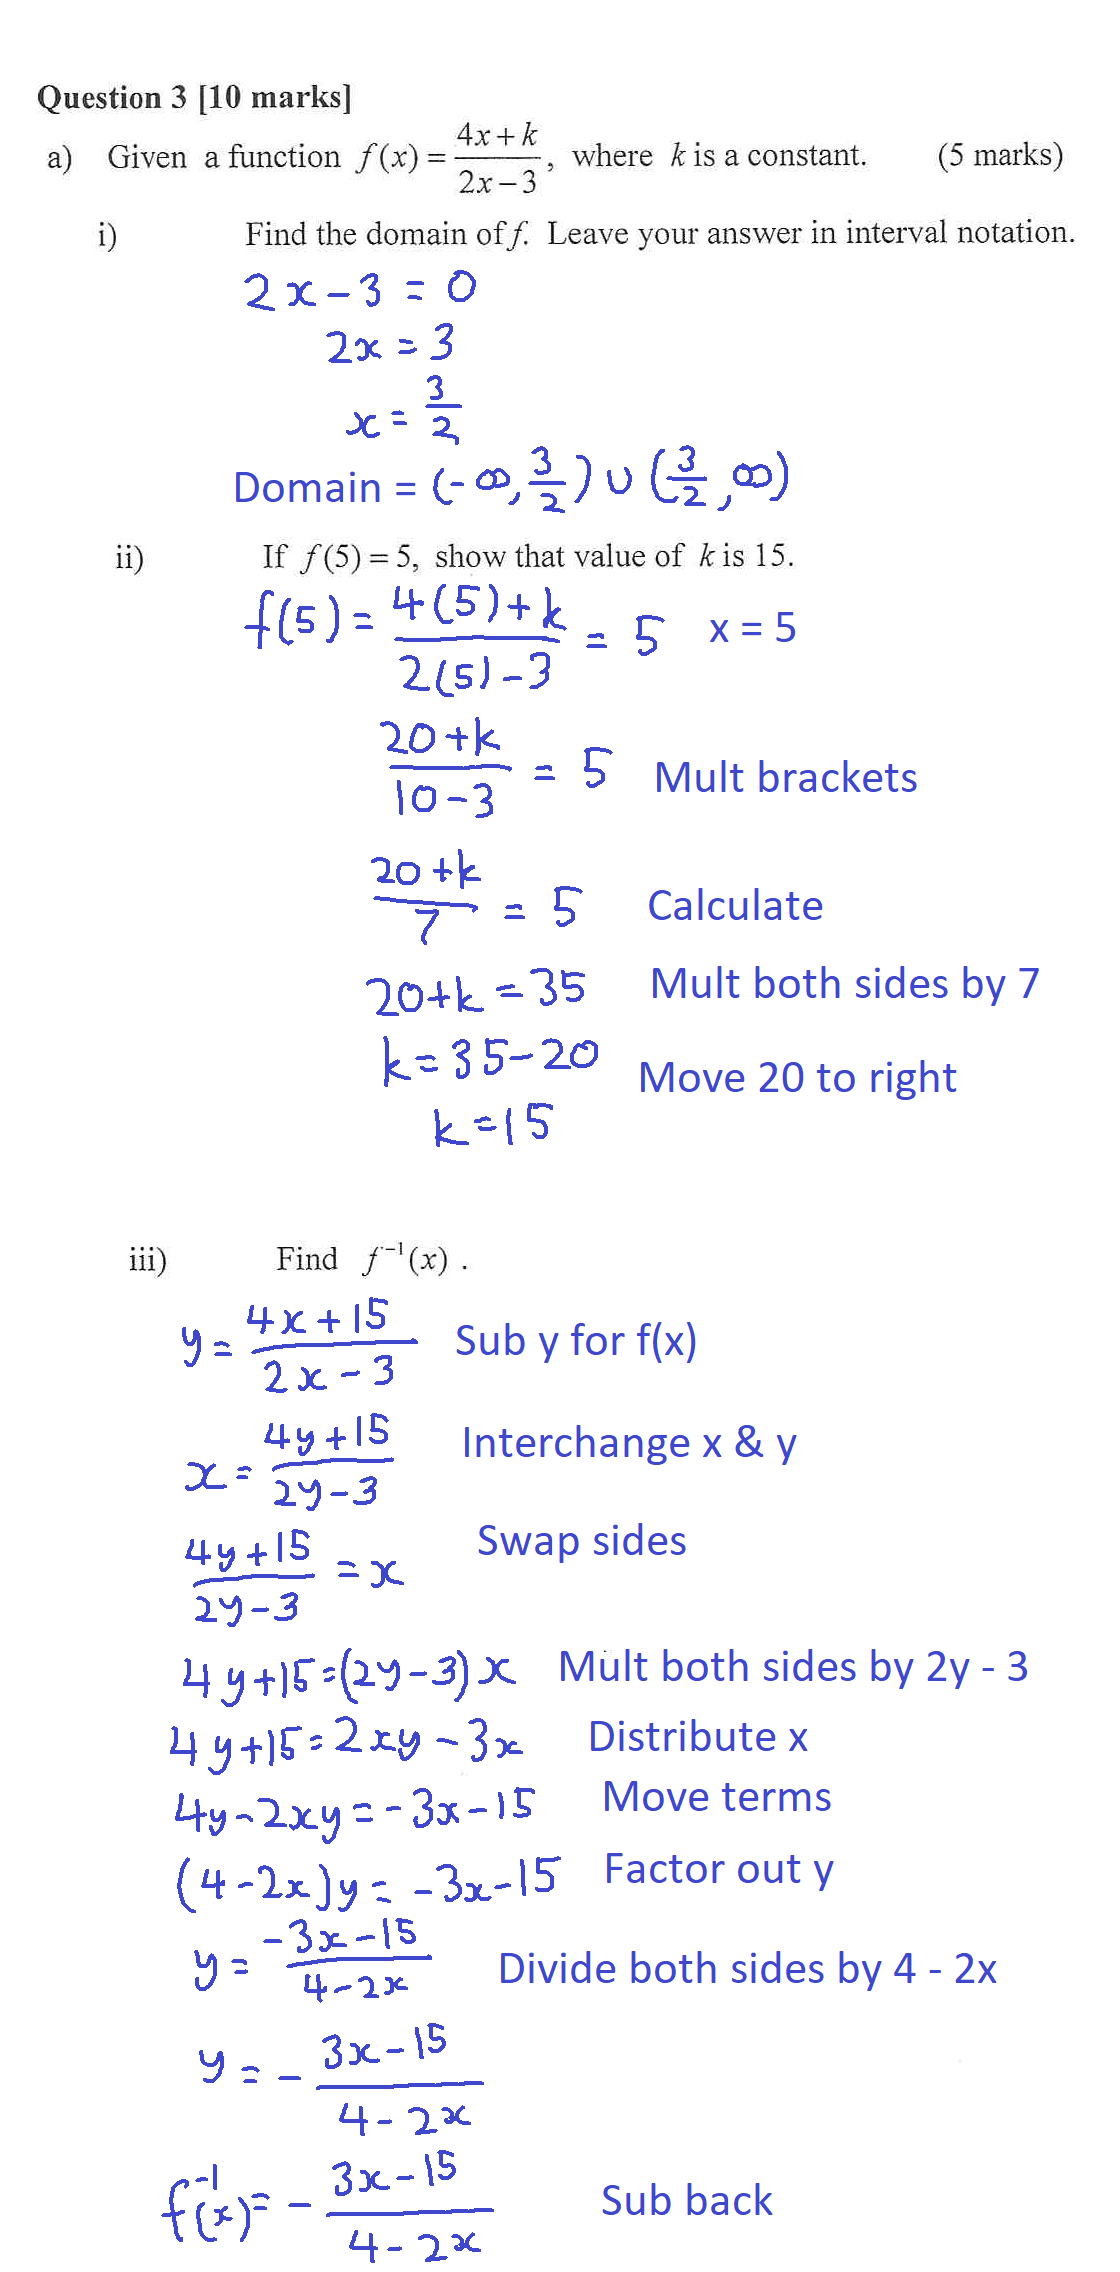 Question 3 [10 marks]
a) Given a function f(x) = (4x + k)/(2x − 3), where k is a constant. (5 marks)
i) Find the domain of f. Leave your answer in interval notation.
2x − 3 = 0
2x = 3
x = 3/2
Domain = (−∞, 3/2) ∪ (3/2, ∞)
ii) If f(5) = 5, show that value of k is 15.
f(5) = (4(5) + k)/(2(5) − 3) = 5 x = 5
(20 + k)/(10 − 3) = 5 Mult brackets
(20 + k)/7 = 5 Calculate
20 + k = 35 Mult both sides by 7
k = 35 − 20 Move 20 to right
k = 15
iii) Find f⁻¹(x) .
y = (4x + 15)/(2x − 3) Sub y for f(x)
x = (4y + 15)/(2y − 3) Interchange x & y
(4y + 15)/(2y − 3) = x Swap sides
4y + 15 = (2y − 3)x Mult both sides by 2y - 3
4y + 15 = 2xy − 3x Distribute x
4y − 2xy = −3x − 15 Move terms
(4 − 2x)y = −3x − 15 Factor out y
y = (−3x − 15)/(4 − 2x) Divide both sides by 4 - 2x
y = − (3x − 15)/(4 − 2x)
f⁻¹(x) = − (3x − 15)/(4 − 2x) Sub back